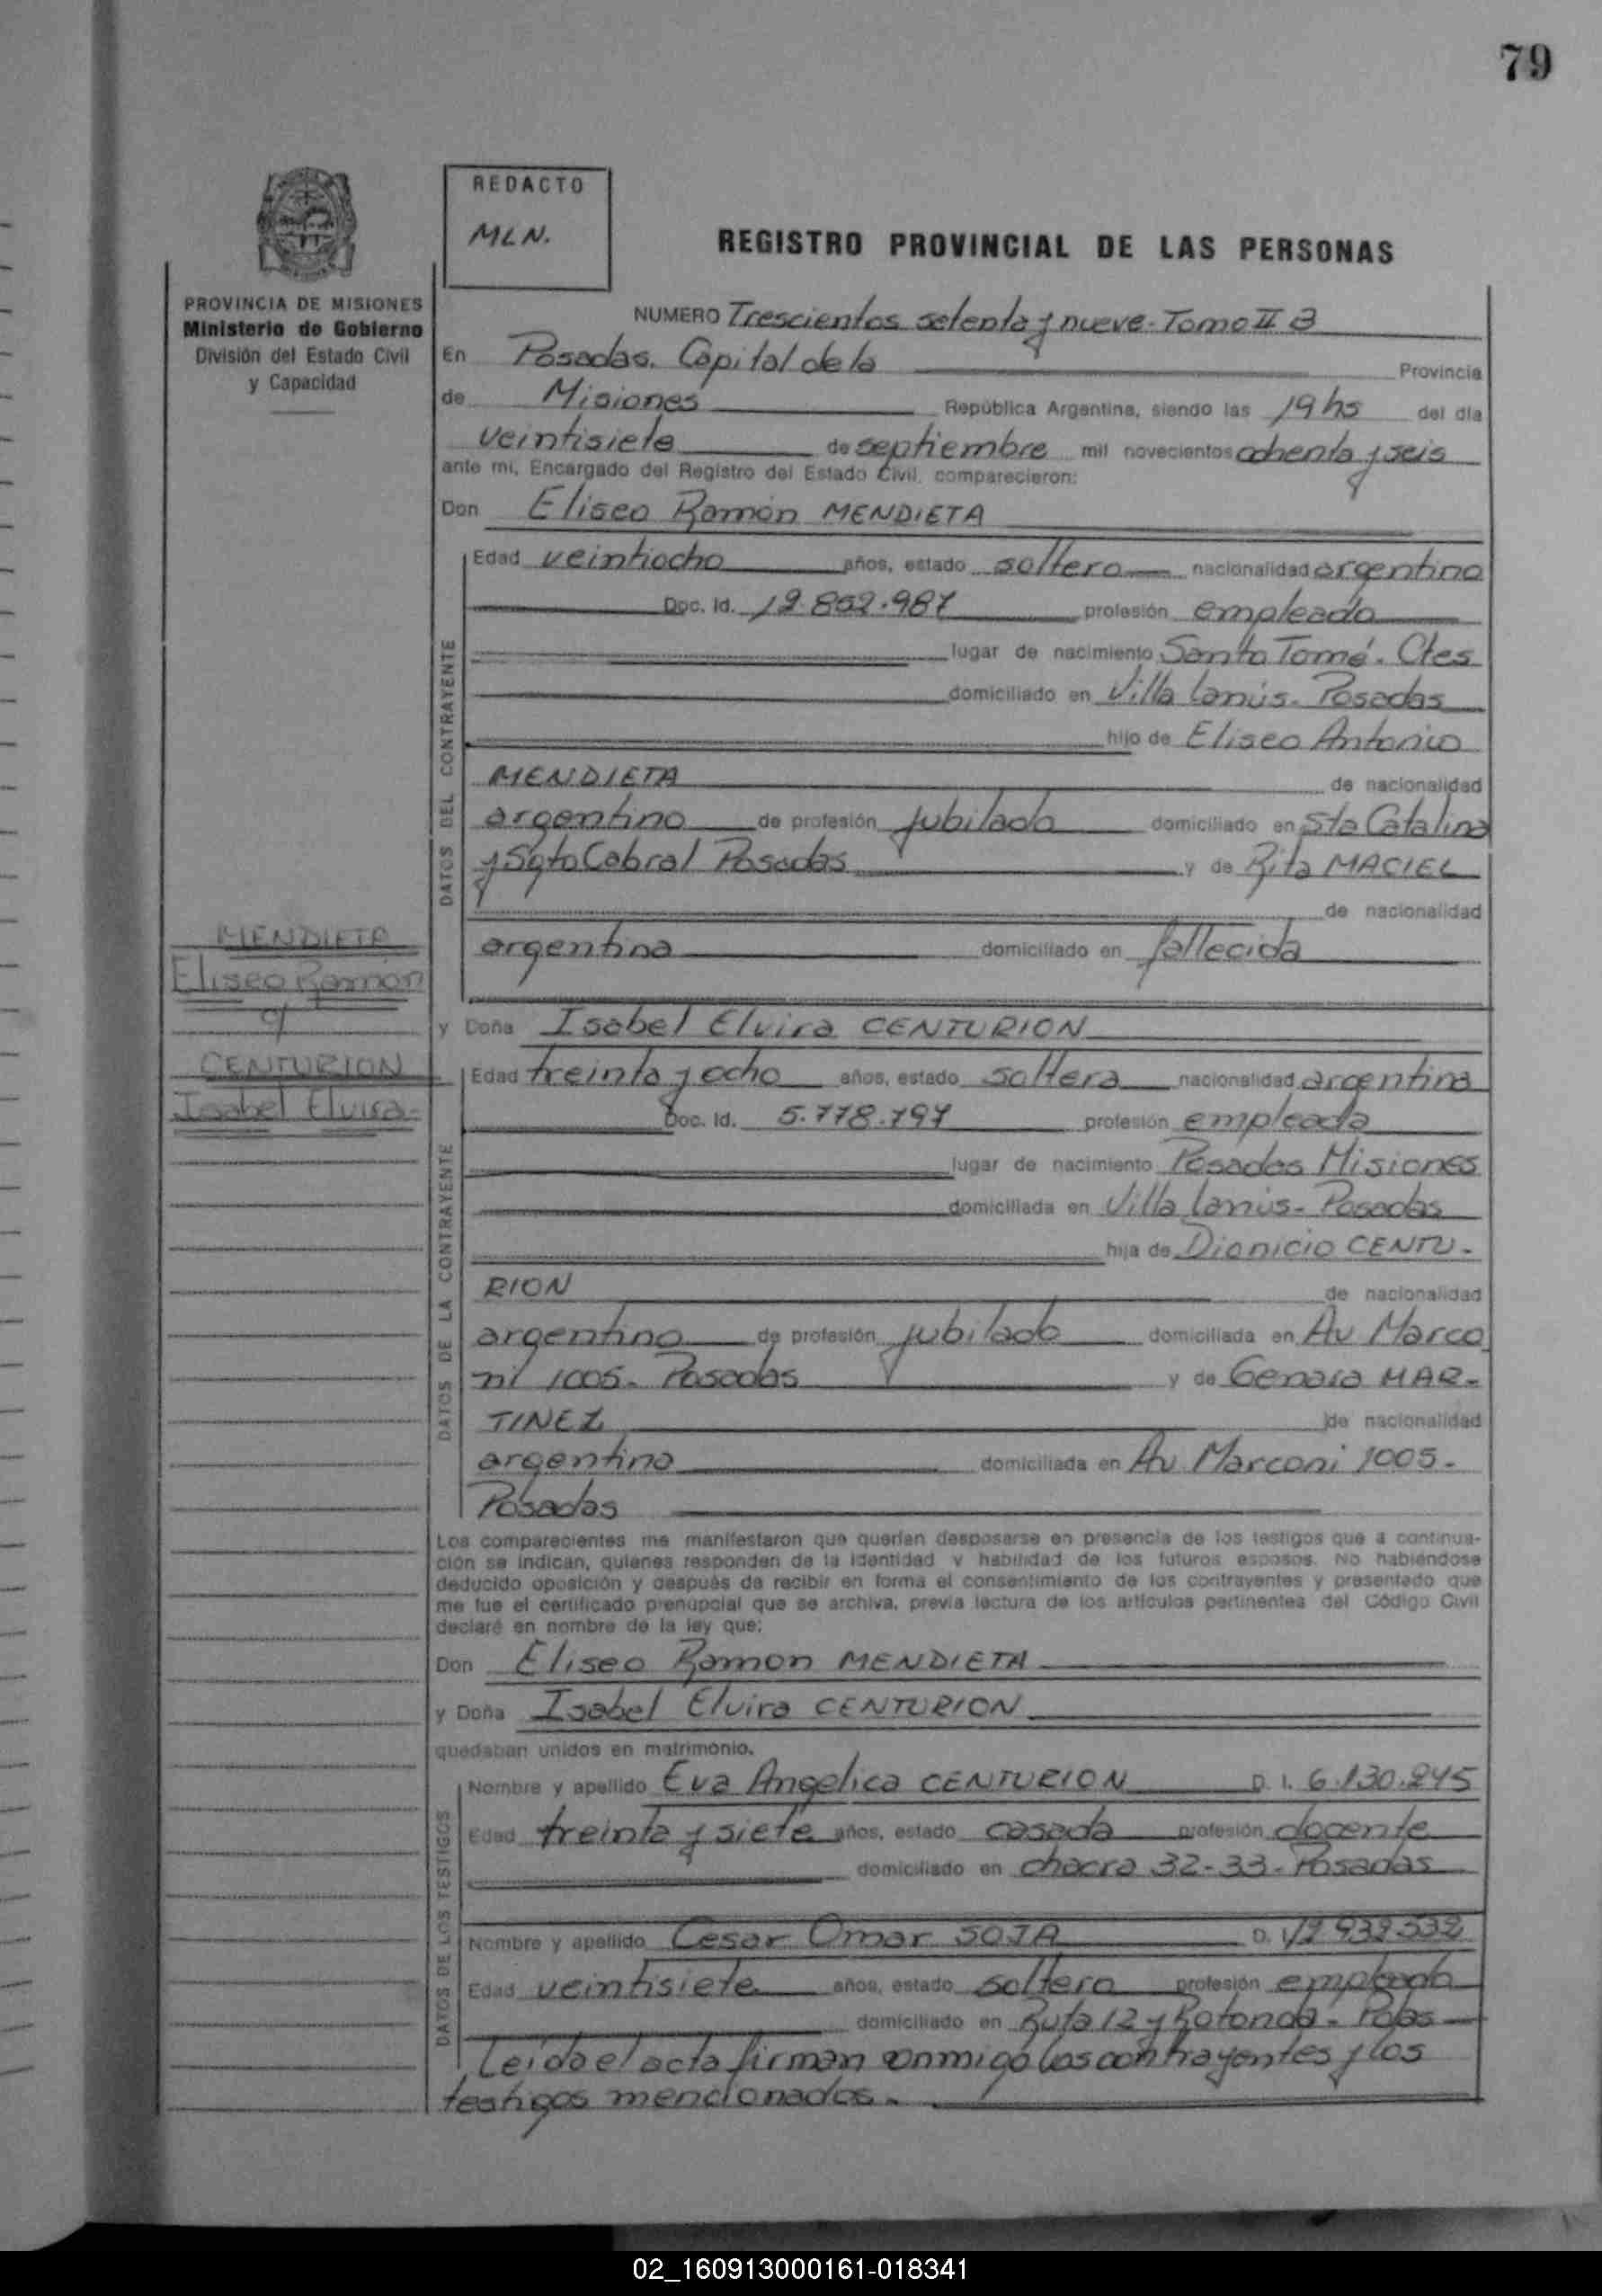 79
REDACTO
MLN.
REGISTRO PROVINCIAL DE LAS PERSONAS
PROVINCIA DE MISIONES
Ministerio de Gobierno
División del Estado Civil
y Capacidad
NUMERO Trescientos setenta y nueve - Tomo II B
En Posadas. Capital de la Provincia
de Misiones República Argentina, siendo las 19 hs del día
veintisiete de septiembre mil novecientos ochenta y seis
ante mí, Encargado del Registro del Estado Civil, comparecieron:
Don Eliseo Ramón MENDIETA
DATOS DEL CONTRAYENTE
Edad veintiocho años, estado soltero nacionalidad argentino
Doc. Id. profesión empleado
lugar de nacimiento Santo Tomé. Ctes
domiciliado en Villa Lanús - Posadas
hijo de Eliseo Antonio
MENDIETA de nacionalidad
argentino de profesión jubilado domiciliado en Sta Catalina
y Sgto Cabral Posadas y de Rita MACIEL
de nacionalidad
argentina domiciliado en fallecida
MENDIETA
Eliseo Ramón
c/
CENTURION
Isabel Elvira-
y Doña Isabel Elvira CENTURION
DATOS DE LA CONTRAYENTE
Edad treinta y ocho años, estado soltera nacionalidad argentina
Doc. Id. 5.778.797 profesión empleada
lugar de nacimiento Posadas Misiones
domiciliada en Villa Lanús - Posadas
hija de Dionicio CENTU-
RION de nacionalidad
argentino de profesión jubilado domiciliada en Av Marco
ni 1005 - Posadas y de Genara MAR-
TINEZ de nacionalidad
argentina domiciliada en Av Marconi 1005 -
Posadas
Los comparecientes me manifestaron que querían desposarse en presencia de los testigos que a continua-
ción se indican, quienes responden de la identidad y habilidad de los futuros esposos. No habiéndose
deducido oposición y después de recibir en forma el consentimiento de los contrayentes y presentado que
me fue el certificado prenupcial que se archiva, previa lectura de los artículos pertinentes del Código Civil
declaré en nombre de la ley que:
Don Eliseo Ramon MENDIETA
y Doña Isabel Elvira CENTURION
quedaban unidos en matrimonio.
DATOS DE LOS TESTIGOS
Nombre y apellido Eva Angelica CENTURION D. I. 6.130.245
Edad treinta y siete años, estado casada profesión docente
domiciliado en chacra 32-33 - Posadas
Nombre y apellido Cesar Omar SOJA D. I.
Edad veintisiete años, estado soltero profesión empleado
domiciliado en Ruta 12 y Rotonda - Pdas
Leída el acta firman conmigo los contrayentes y los
testigos mencionados.
02_160913000161-018341